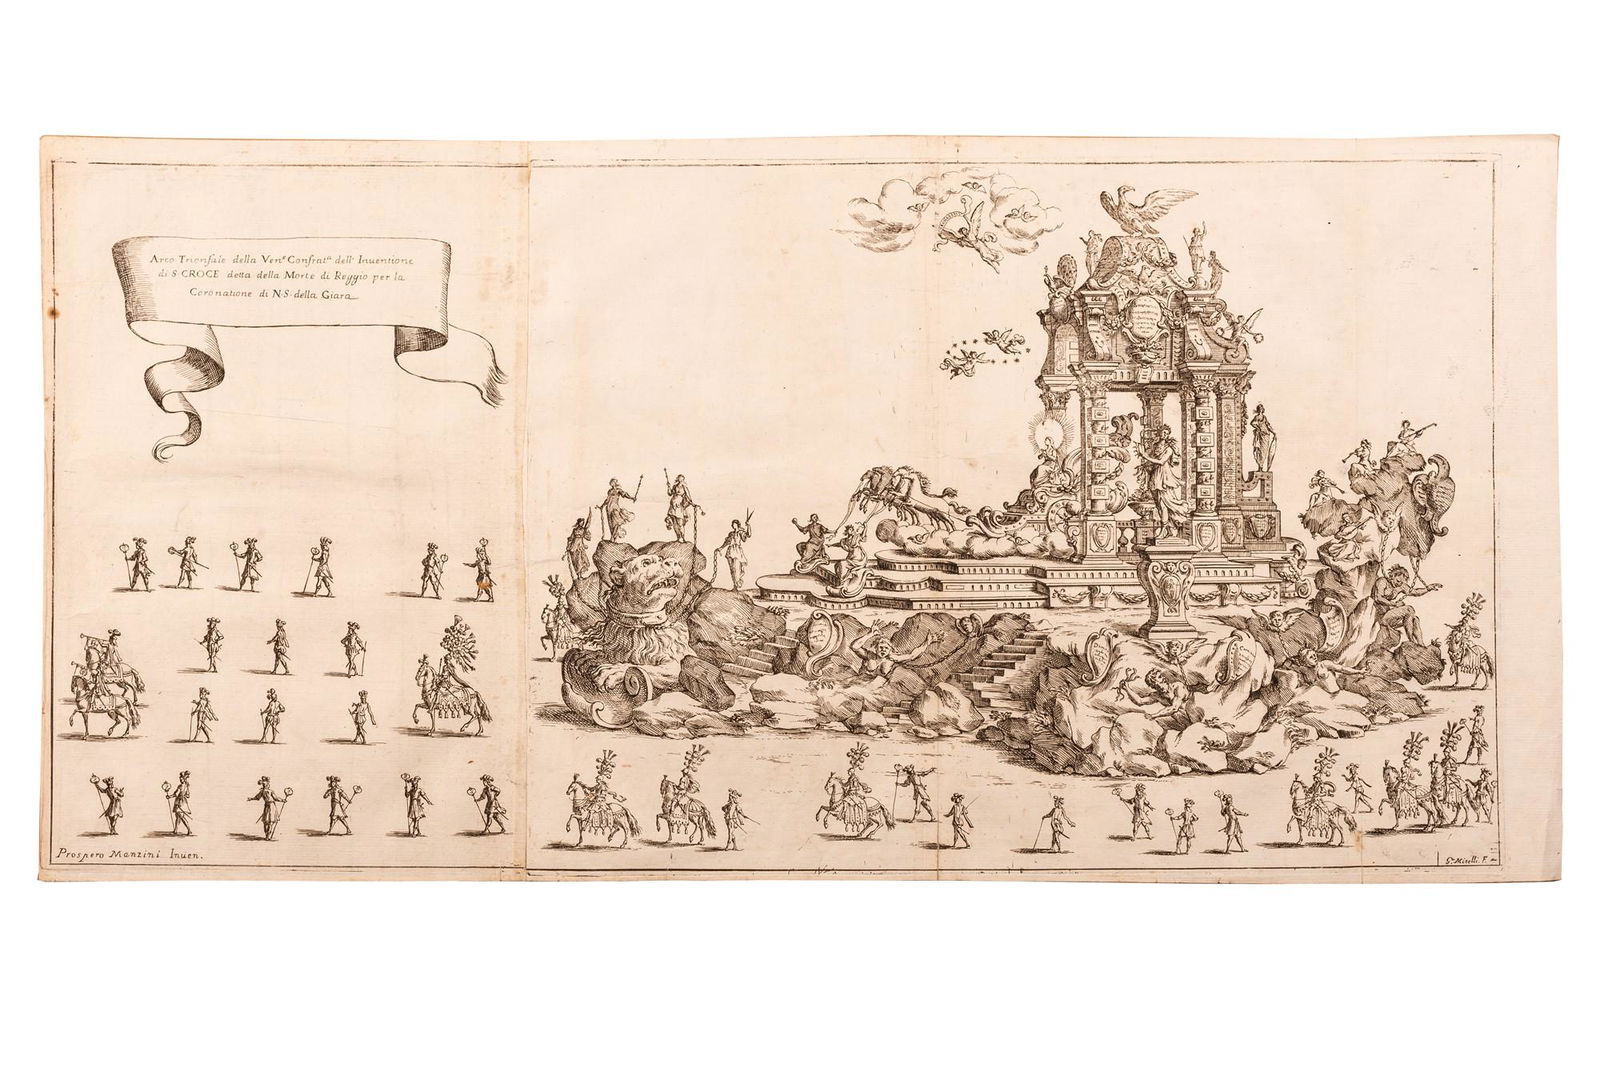 Arco Trionfale della Ven.e Confrat.a dell' Inuentione
di S. CROCE detta della Morte di Reggio per la
Coronatione di N.S. della Giara
Prospero Manzini Inuen.
Mitelli. F.